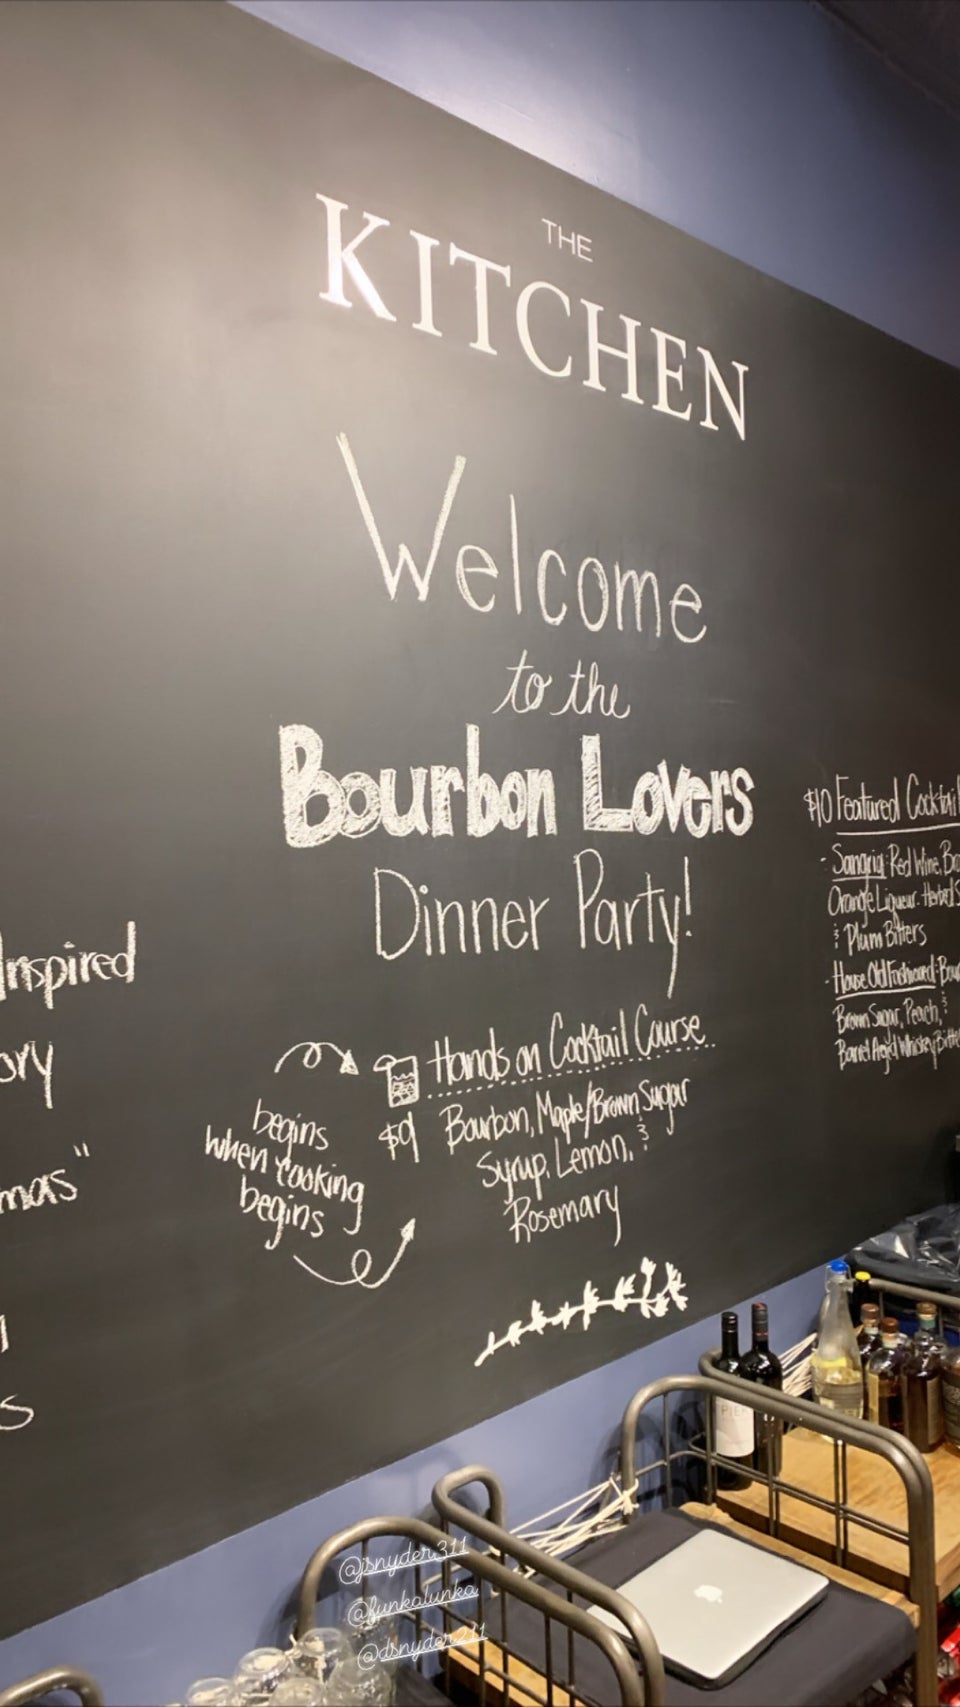 THE
KITCHEN
Welcome
to the
Bourbon Lovers
Dinner Party!
Hands on Cocktail Course
$9 Bourbon, Maple/Brown Sugar
Syrup, Lemon, &
Rosemary
begins
when cooking
begins
Inspired
ory
mas"
$10 Featured Cocktail
- Sangria: Red Wine,
Orange Liqueur, Herbal
& Plum Bitters
- House Old Fashioned:
Brown Sugar, Peach, &
Barrel Aged Whiskey Bitte
@jsnyder311
@funkalunka
@dsnyder211